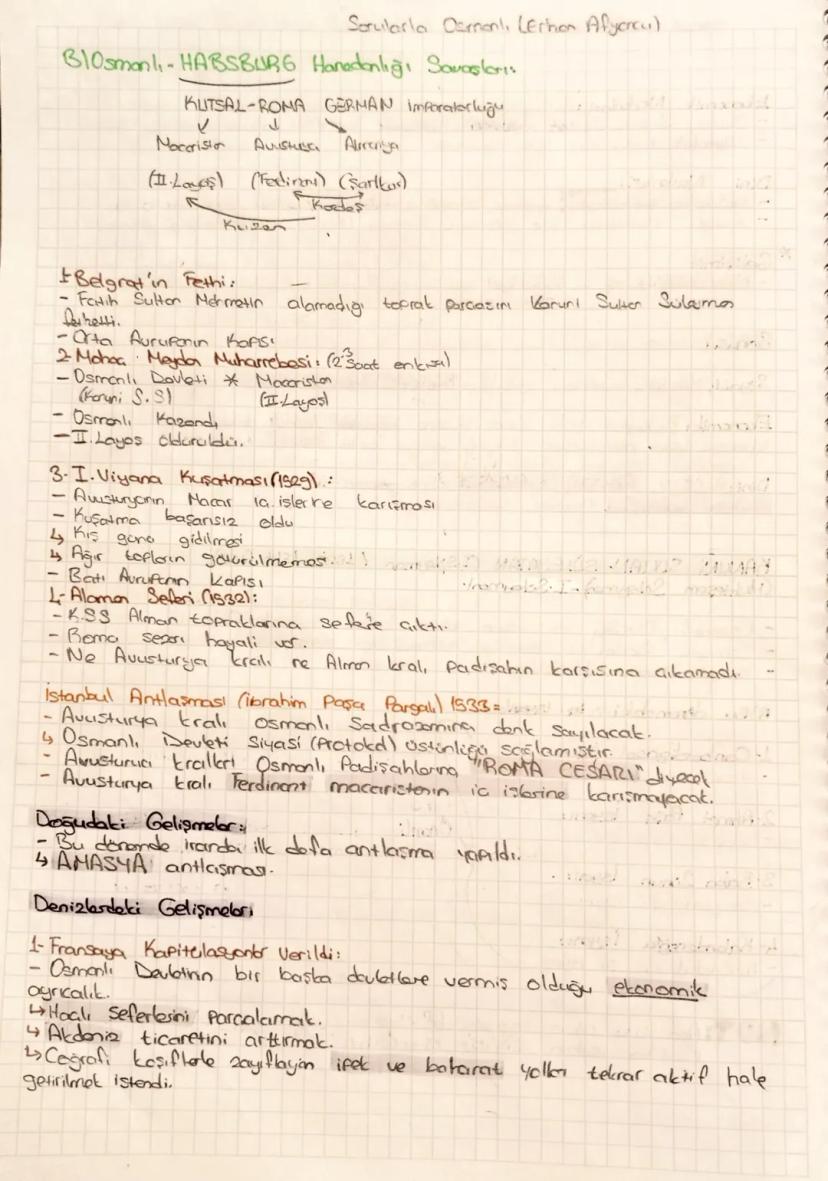 Sorularla Osmanlı (Erhan Afyoncu)
B) Osmanlı - HABSBURG Hanedanlığı Savaşları:
KUTSAL-ROMA GERMAN imparatorluğu
Macaristan Avusturya Almanya
(II. Layoş) (Ferdinant) (Şarlken)
Kardeş
Kuzen
1- Belgrat'ın Fethi:
- Fatih Sultan Mehmetin alamadığı toprak parçasını Kanuni Sultan Süleyman
fethetti.
- Orta Avrupanın Kapısı
2- Mohaç Meydan Muharrebesi: (2-3 saat en kısa)
- Osmanlı Devleti * Macaristan
(Kanuni S.S) (II. Layoş)
- Osmanlı Kazandı
- II. Layoş öldürüldü.
3- I. Viyana Kuşatması (1529):
- Avusturyanın Macar iç işlerine karışması
- Kuşatma başarısız oldu
↳ Kış günü gidilmesi
↳ Ağır topların götürülmemesi.
- Batı Avrupanın Kapısı
4- Alaman Seferi (1532):
- K.S.S Alman topraklarına sefere çıktı.
- Roma sezarı hayali var.
- Ne Avusturya kralı ne Alman kralı padişahın karşısına çıkamadı.
İstanbul Antlaşması (İbrahim Paşa Pargalı) 1533=
- Avusturya kralı Osmanlı Sadrazamına denk sayılacak.
↳ Osmanlı Devleti Siyasi (Protokol) üstünlüğü sağlamıştır.
- Avusturya kralları Osmanlı Padişahlarına "ROMA CESARI" diyecek
- Avusturya kralı Ferdinant macaristanın iç işlerine karışmayacak.
Doğudaki Gelişmeler:
- Bu dönemde iranda ilk defa antlaşma yapıldı.
↳ AMASYA antlaşması.
Denizlerdeki Gelişmeler:
1- Fransaya Kapitülasyonlar Verildi:
- Osmanlı Devletinin bir başka devletlere vermiş olduğu ekonomik
ayrıcalık.
↳ Haçlı Seferlerini parçalamak.
↳ Akdeniz ticaretini arttırmak.
↳ Coğrafi keşiflerle zayıflayan ipek ve baharat yolları tekrar aktif hale
getirilmek istendi.